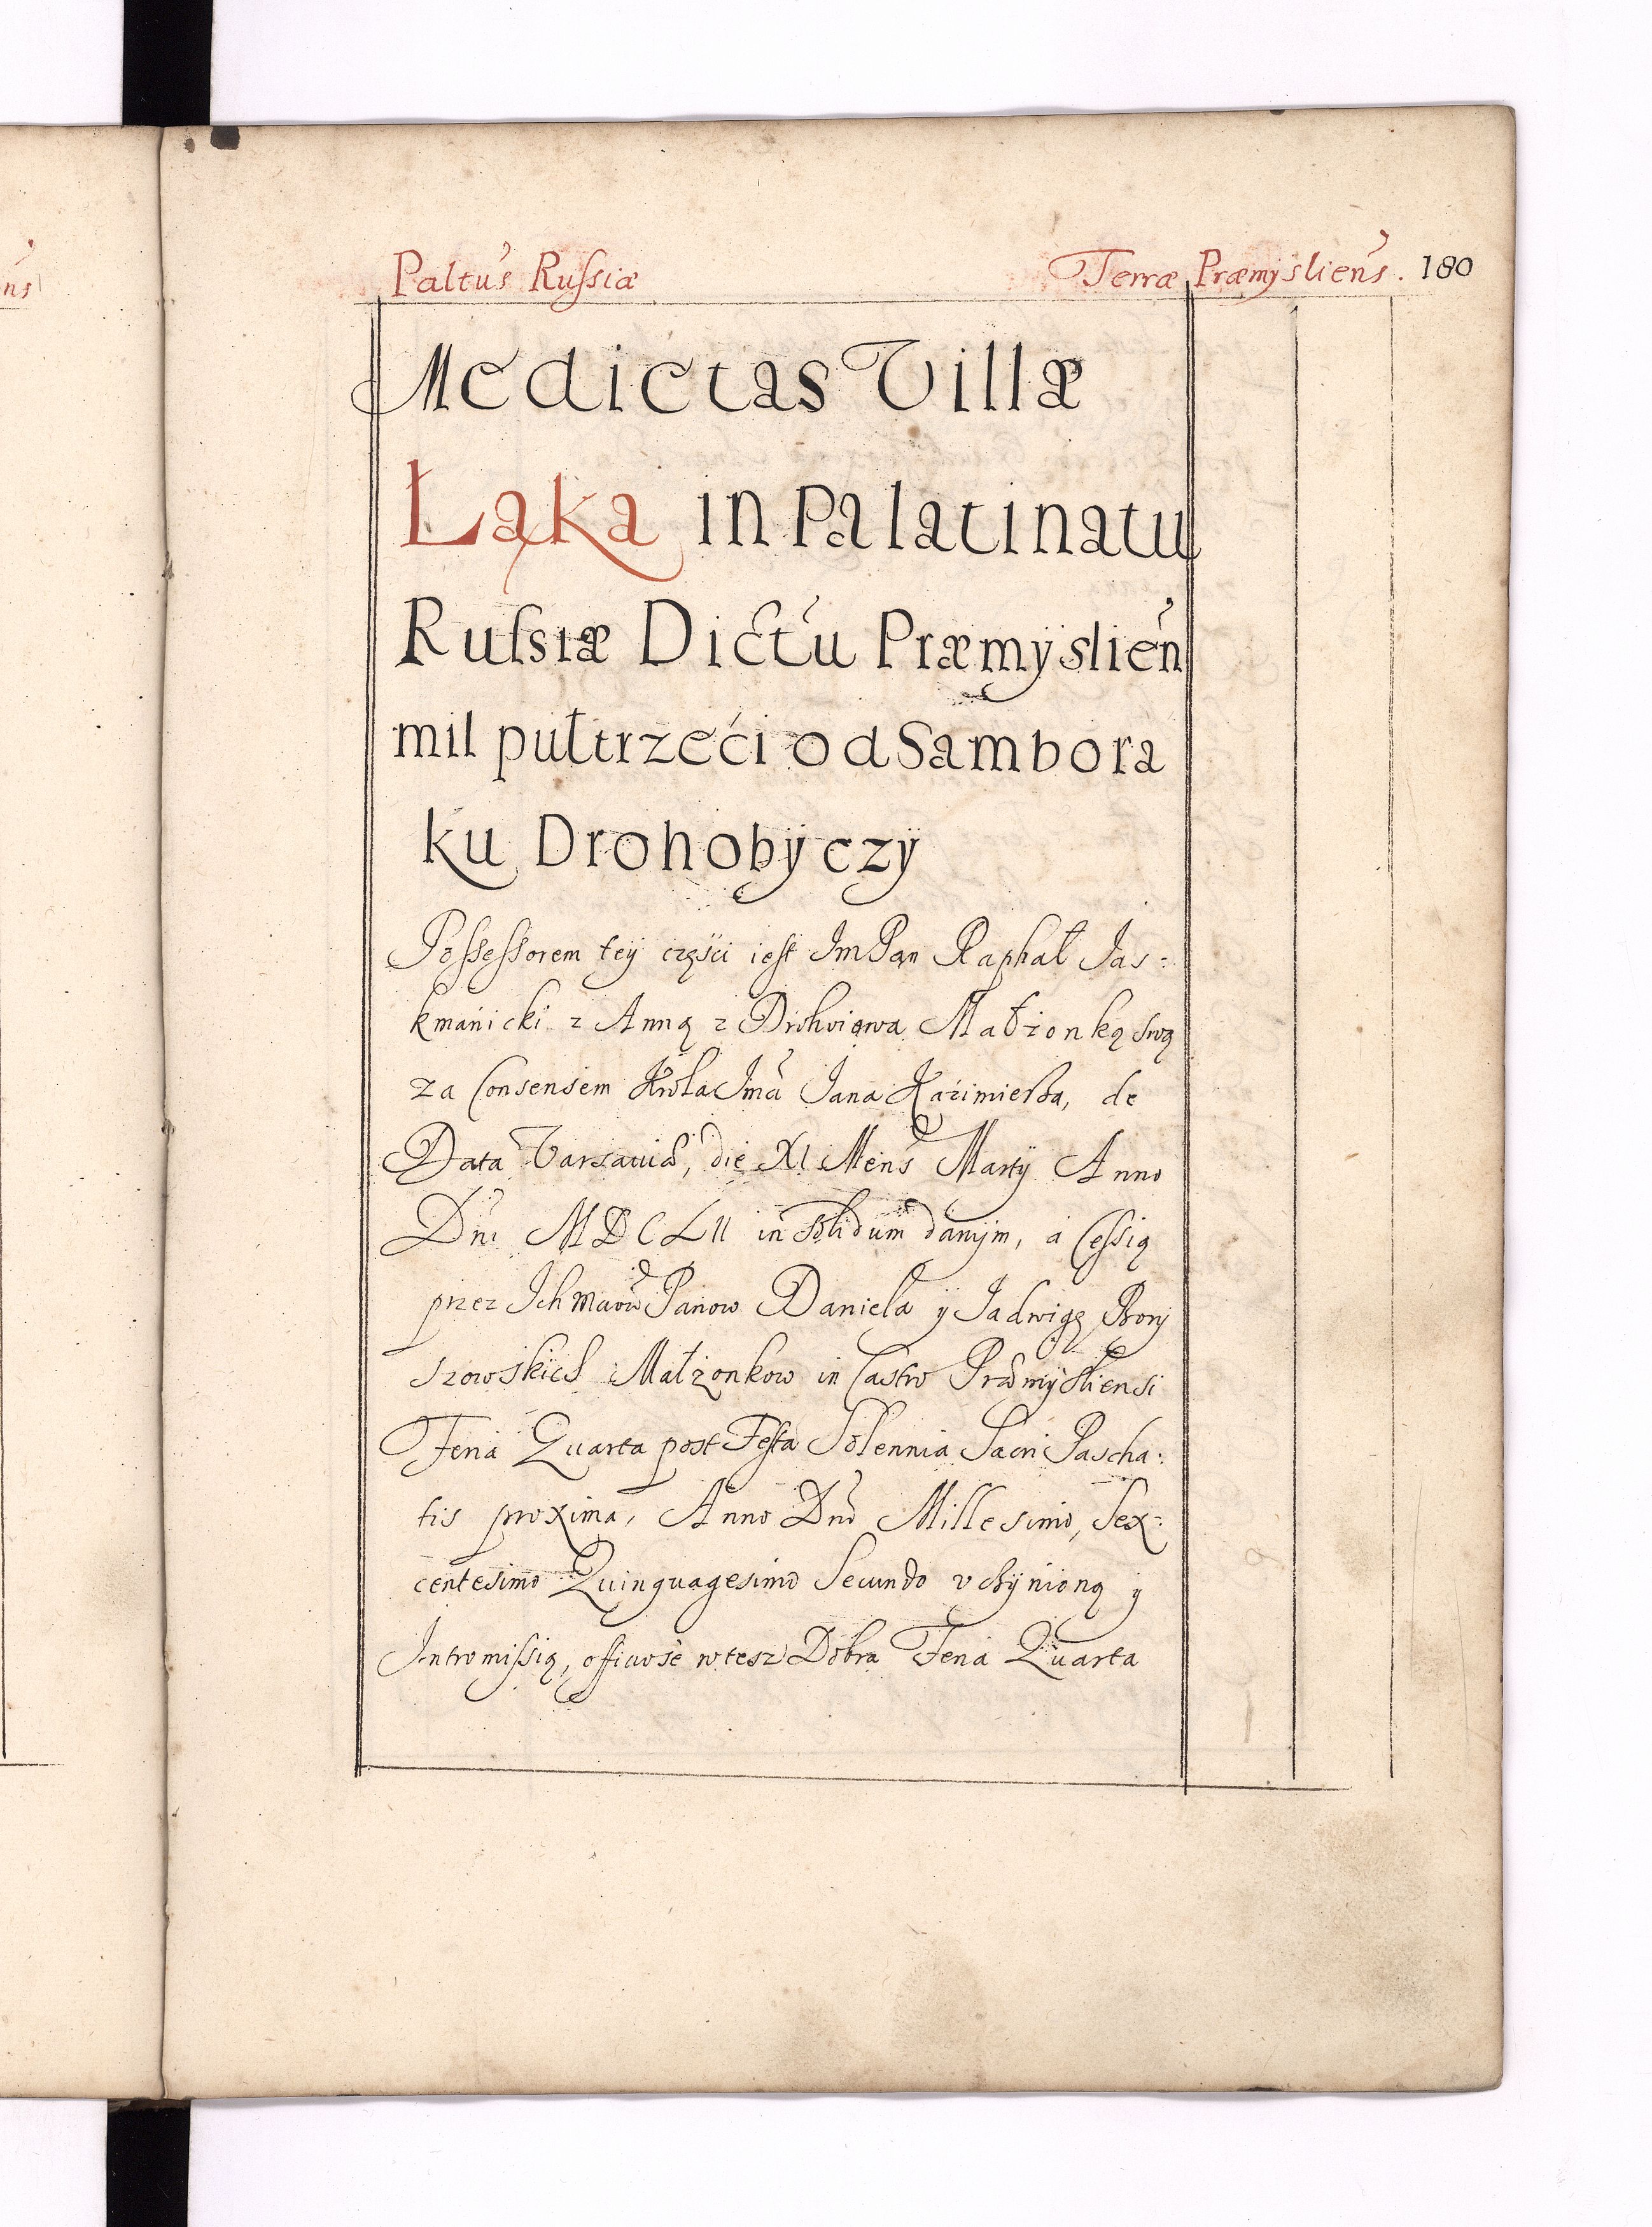 Paltus Russiæ Terræ Præmysliens. 180
Medietas Villæ
Łąka in Palatinatu
Russiæ Dictu Præmyslien
mil pułtrzeći od Sambora
ku Drohobÿczÿ
Possessorem teÿ częśći iest Im Pan Raphał Jas=
kmánicki z Anną z Drohoiowa Małżonką swą
za Consensem Krola Jmći Jana Kaźimierza, de
Data Varsaviæ, die XI Mens Martÿ Anno
Dni MDCLII in solidum danÿm, á Cessią
przez Ich Mćiow Panow Daniela ÿ Jadwigę Borÿ
szowskich Małżonkow in Castro Præmÿsliensi
Feria Quarta post Festa Solennia Sacri Pascha=
tis proxima, Anno Dni Millesimo, Sex=
centesimo Quinquagesimo Secundo vczÿnioną ÿ
Intromissią, officiosè w tesz Dobra Feria Quarta